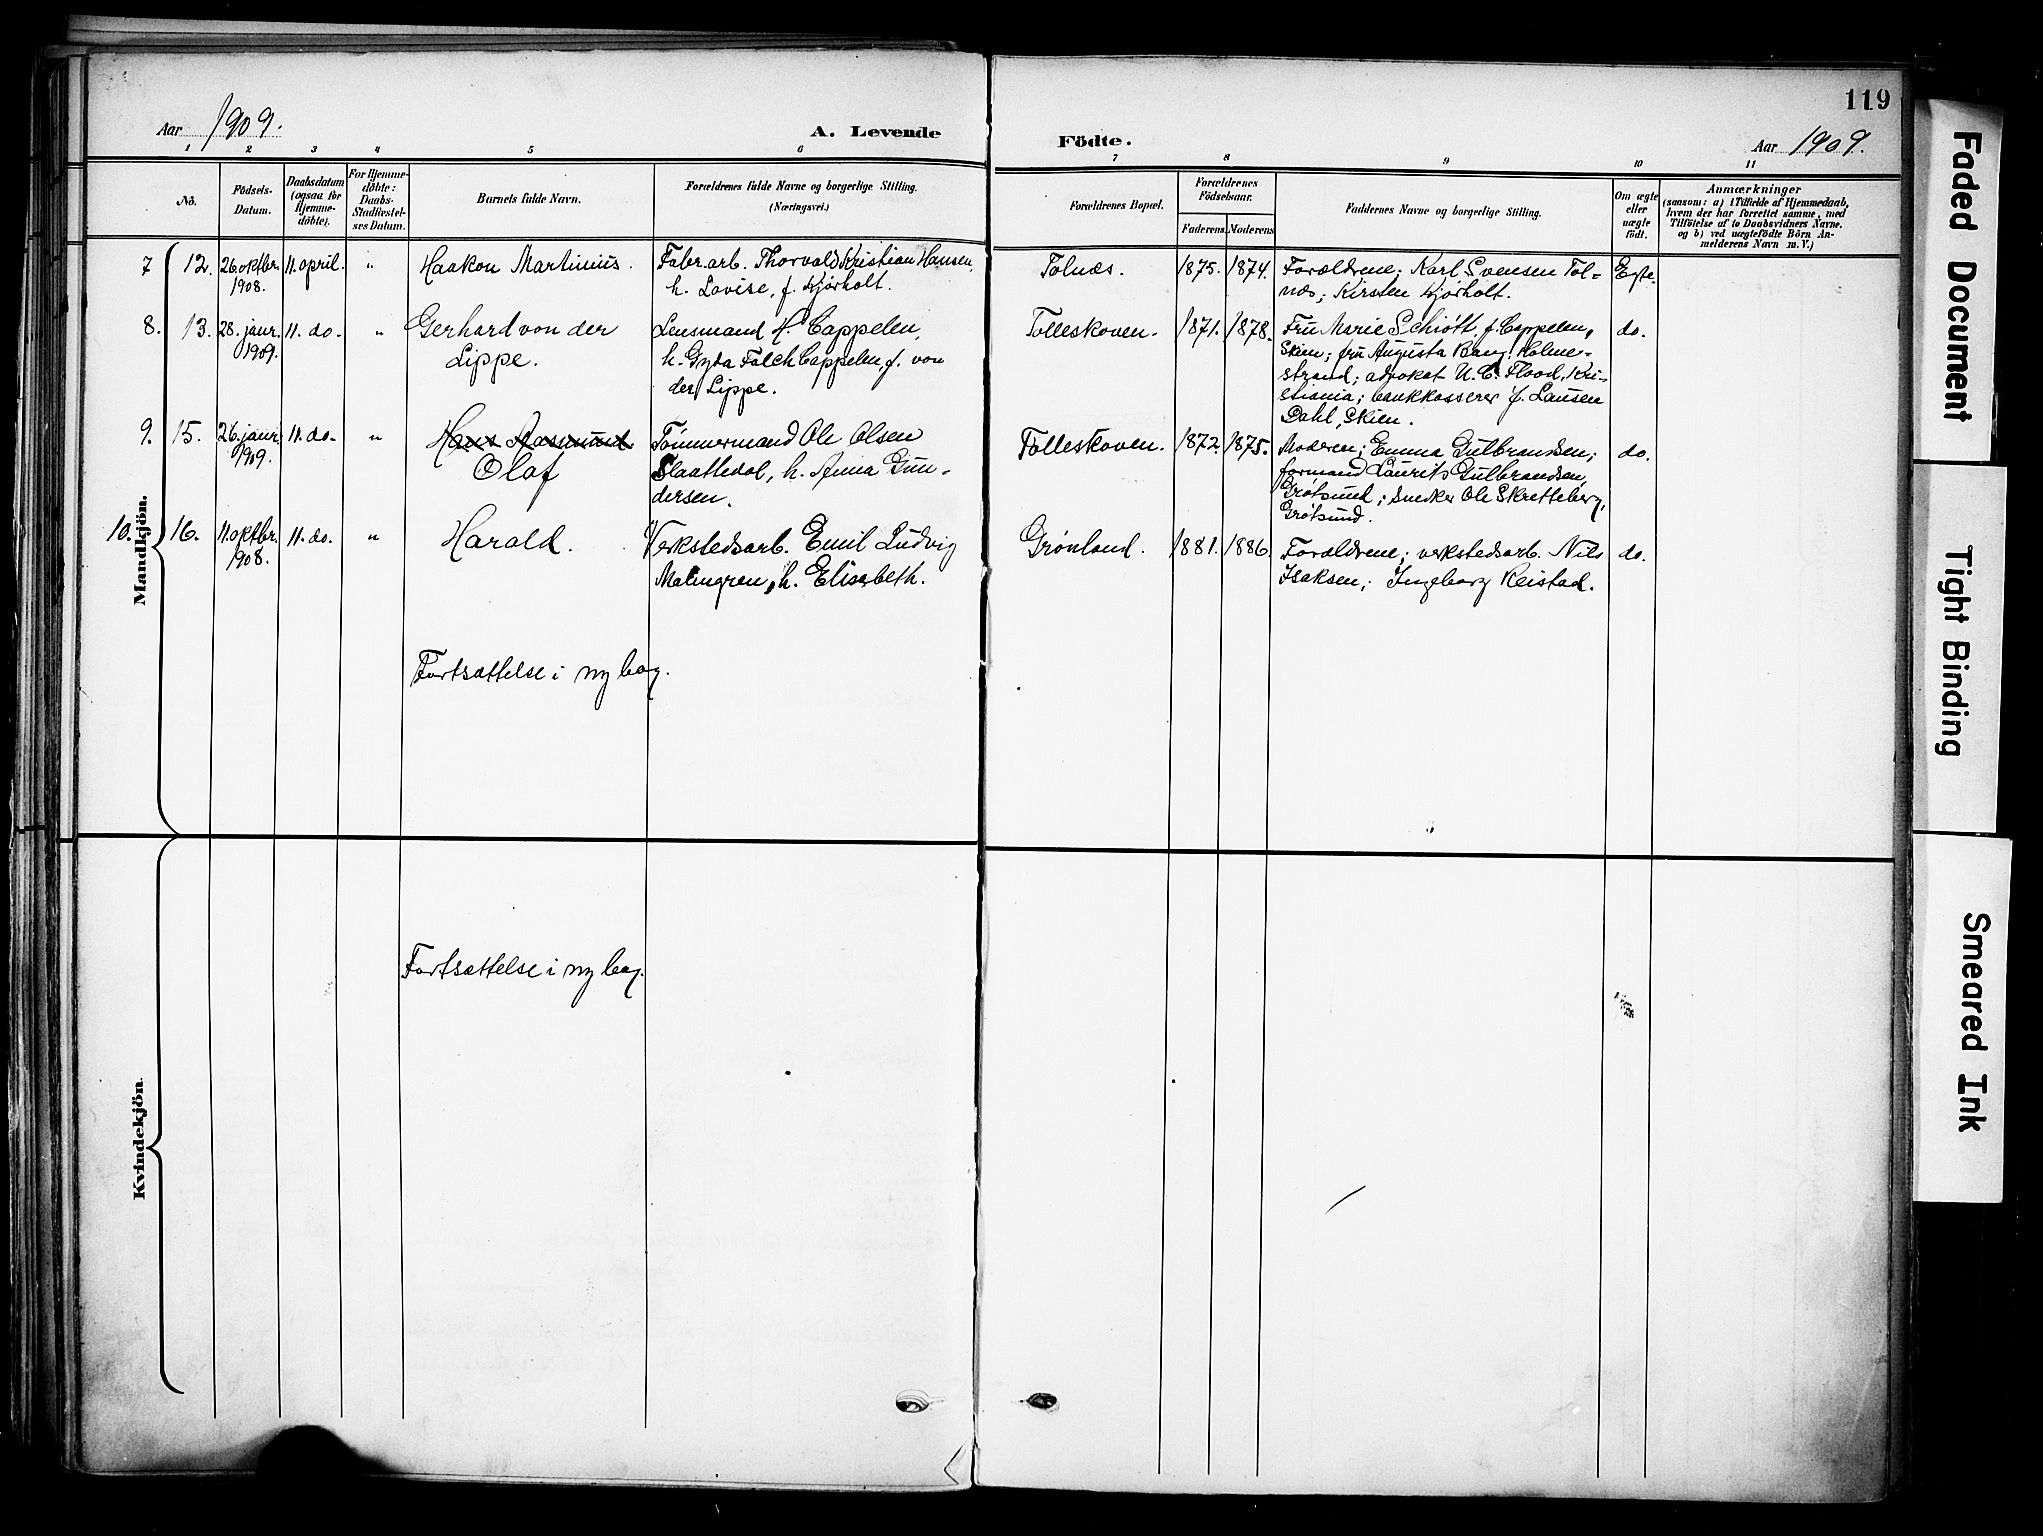 Aar 1909.
A. Levende
Födte.
Aar 1909.
119
1 2 3 4 5 6 7 8 9 10 11
No.
Födsels-
Datum.
Daabsdatum
(ogsaa for
Hjemme-
döbte).
For Hjemme-
döbte:
Daabs-
Stadfæstel-
ses Datum.
Barnets fulde Navn.
Forældrenes fulde Navne og borgerlige Stilling.
(Næringsvei.)
Forældrenes Bopæl.
Forældrenes
Födselsaar.
Faderens
Moderens
Faddernes Navne og borgerlige Stilling.
Om ægte
eller
uægte
födt.
Anmærkninger
(saasom: a) i Tilfælde af Hjemmedaab,
hvem der har forrettet samme, med
Tilföielse af to Daabsvidners Navne.
og b) ved uægtefödte Börn An-
melderens Navn m. V.)
Mandkjön.
7 12. 26 oktbr.
1908.
11. april.
"
Haakon Martinius.
Fabr.arb. Thorvald Kristian Hansen,
h. Lovise, f. Kjørholt.
Tolnæs.
1875. 1874.
Forældrene; Karl Svensen Tol-
næs; Kirsten Kjørholt.
Egte.
8. 13. 28. janr.
1909.
11. do.
"
Gerhard von der
Lippe.
Lensmand H. Cappelen,
h. Gyda Falch Cappelen, f. von
der Lippe.
Tolleskoven.
1871. 1878.
Fru Marie Schiøtt, f. Cappelen,
Skien; fru Augusta Bang. Holme-
strand; advokat U. C. Flood, Kri-
stiania; bankkasserer J. Lausen
Dahl, Skien.
do.
9. 15. 26. janr.
1909.
11. do.
"
Hans Rasmund
Olaf
Tømmermand Ole Olsen
Slaattedal, h. Anna Gun-
dersen.
Tolleskoven.
1872. 1875.
Moderen; Emma Gulbrandsen;
formand Laurits Gulbrandsen,
Grøtsund; snedker Ole Skretteberg,
Grøtsund.
do.
10. 16. 11. oktbr.
1908.
11. do.
"
Harald.
Verkstedsarb. Emil Ludvig
Malmgren, h. Elisabeth.
Grønland.
1881. 1886.
Forældrene; verkstedsarb. Nils
Isaksen; Ingeborg Reistad.
do.
Fortsættelse i ny bog.
Kvindekjön.
Fortsættelse i ny bog.
Faded Document
Tight Binding
Smeared Ink